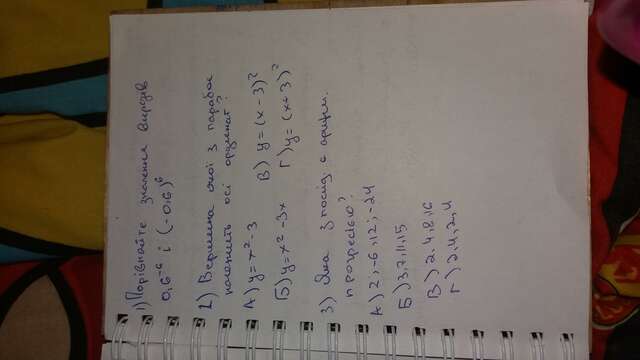 1) Порівняйте значення виразів
0,6⁻⁶ і (-0,6)⁶
2) Вершина якої з парабол
належить осі ординат?
А) y = x² - 3 В) y = (x - 3)²
Б) y = x² - 3x Г) y = (x + 3)²
3) Яка з послід. є арифм.
прогресією?
А) 2, -6, 12, -24
Б) 3, 7, 11, 15
В) 2, 4, 8, 16
Г) 2, 4, 2, 4